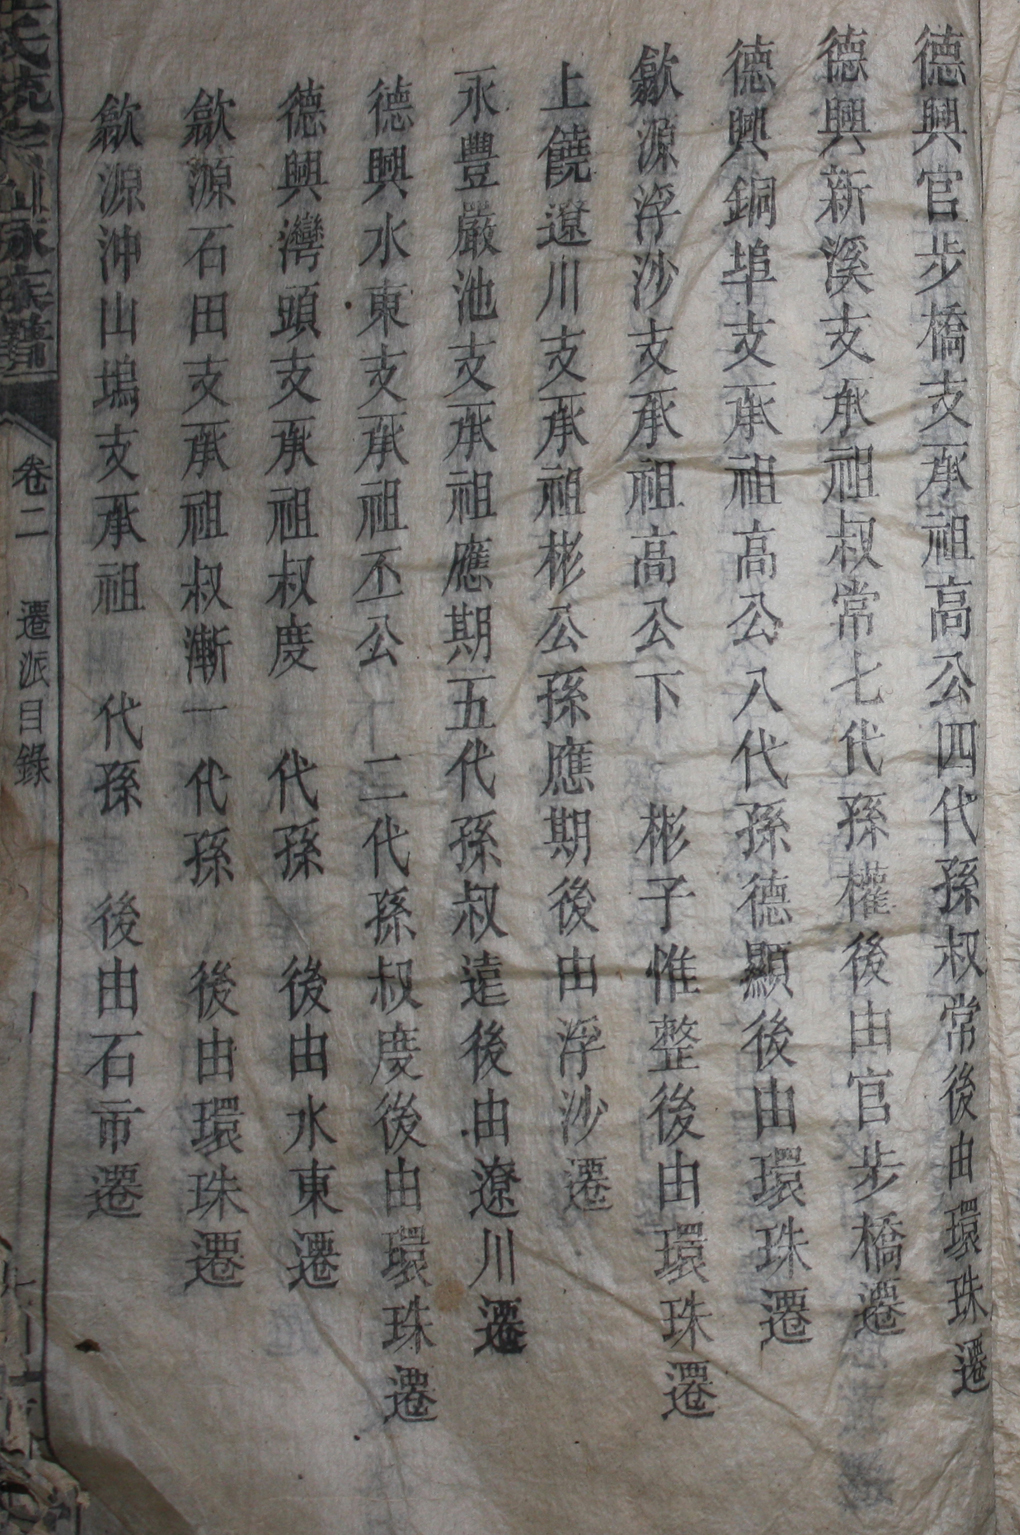 德興官步橋支承祖高公四代孫叔常後由環珠遷
德興新溪支承祖叔常七代孫權後由官步橋遷
德興銅埠支承祖高公八代孫德顯後由環珠遷
歙源浮沙支承祖高公下 彬子惟整後由環珠遷
上饒遼川支承祖彬公孫應期後由浮沙遷
永豐嚴池支承祖應期五代孫叔遠後由遼川遷
德興水東支承祖丕公 二代孫叔度後由環珠遷
德興灣頭支承祖叔度 代孫 後由水東遷
歙源石田支承祖叔漸一代孫 後由環珠遷
歙源沖山塢支承祖 代孫 後由石市遷
卷二 遷派目錄